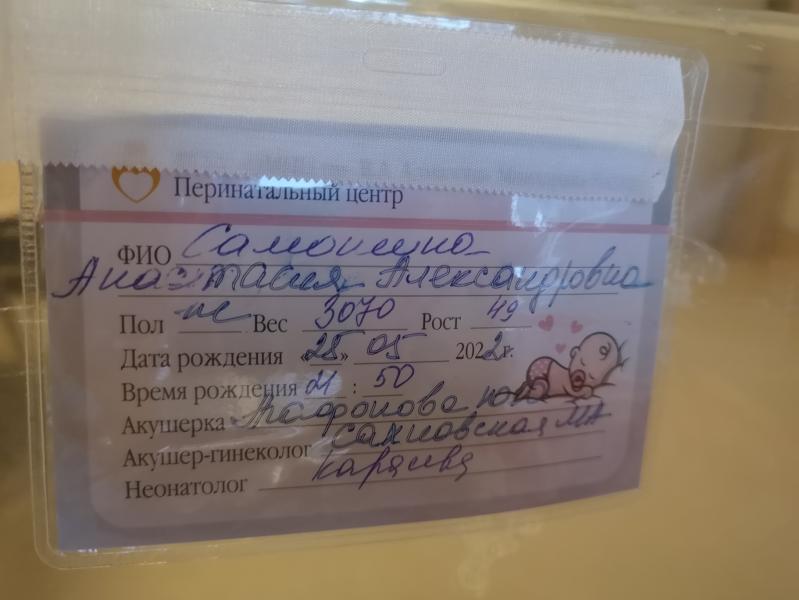 Перинатальный центр
ФИО Самошина
Анастасия Александровна
Пол ж Вес 3070 Рост 49
Дата рождения «28» 05 2022 г.
Время рождения 21 : 50
Акушерка
Акушер-гинеколог Сахновская МА
Неонатолог Караева